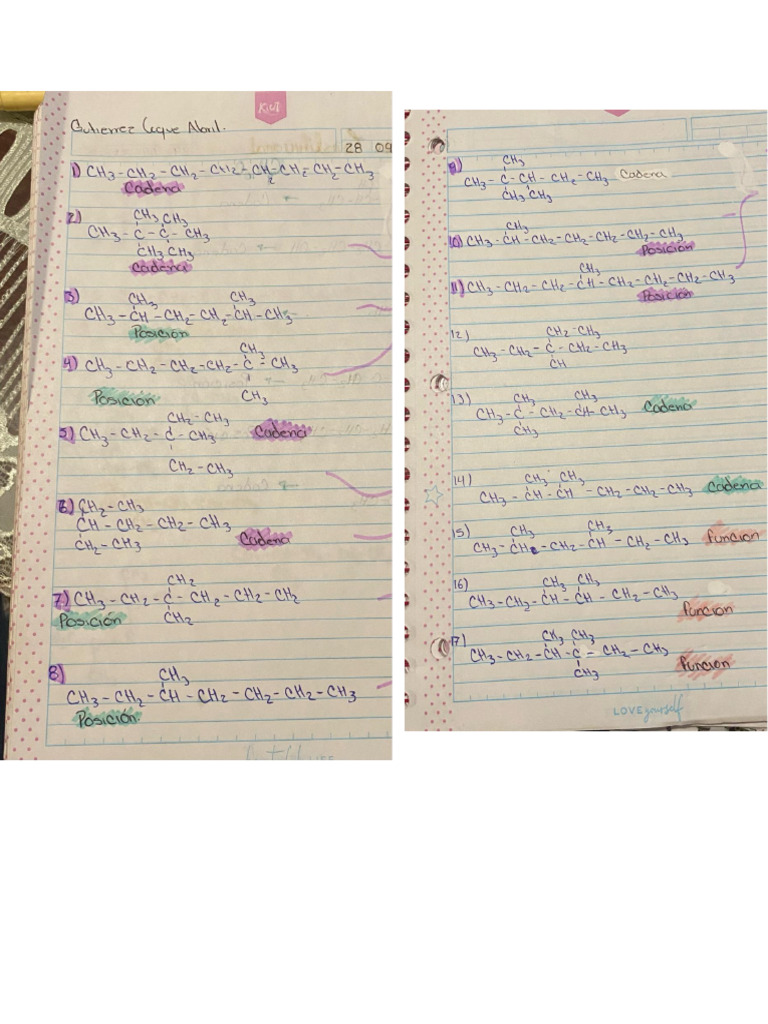 KiUT
Gutierrez Ceque Abril.
28 09
1) CH3-CH2-CH2-CH2-CH2-CH2-CH2-CH3
Cadena
2) CH3 CH3
CH3-C-C-CH3
CH3 CH3
Cadena
3) CH3 CH3
CH3-CH-CH2-CH2-CH-CH3
Posición
CH3
4) CH3-CH2-CH2-CH2-C-CH3
Posición CH3
CH2-CH3
5) CH3-CH2-C-CH3 Cadena
CH2-CH3
6) CH2-CH3
CH-CH2-CH2-CH3
CH2-CH3 Cadena
CH2
7) CH3-CH2-C-CH2-CH2-CH2
Posición CH2
8) CH3
CH3-CH2-CH-CH2-CH2-CH2-CH3
Posición
CH3
9) CH3-C-CH-CH2-CH3 Cadena
CH3 CH3
CH3
10) CH3-CH-CH2-CH2-CH2-CH2-CH3
Posición
CH3
11) CH3-CH2-CH2-CH-CH2-CH2-CH2-CH3
Posición
12) CH2-CH3
CH3-CH2-C-CH2-CH3
CH
13) CH3 CH3
CH3-C-CH2-CH-CH3 Cadena
CH3
14) CH3 CH3
CH3-CH-CH-CH2-CH2-CH3 Cadena
15) CH3 CH3
CH3-CH-CH2-CH-CH2-CH3 función
16) CH3 CH3
CH3-CH2-CH-CH-CH2-CH3
función
17) CH3 CH3
CH3-CH2-CH-C-CH2-CH3
CH3 función
LOVE yourself